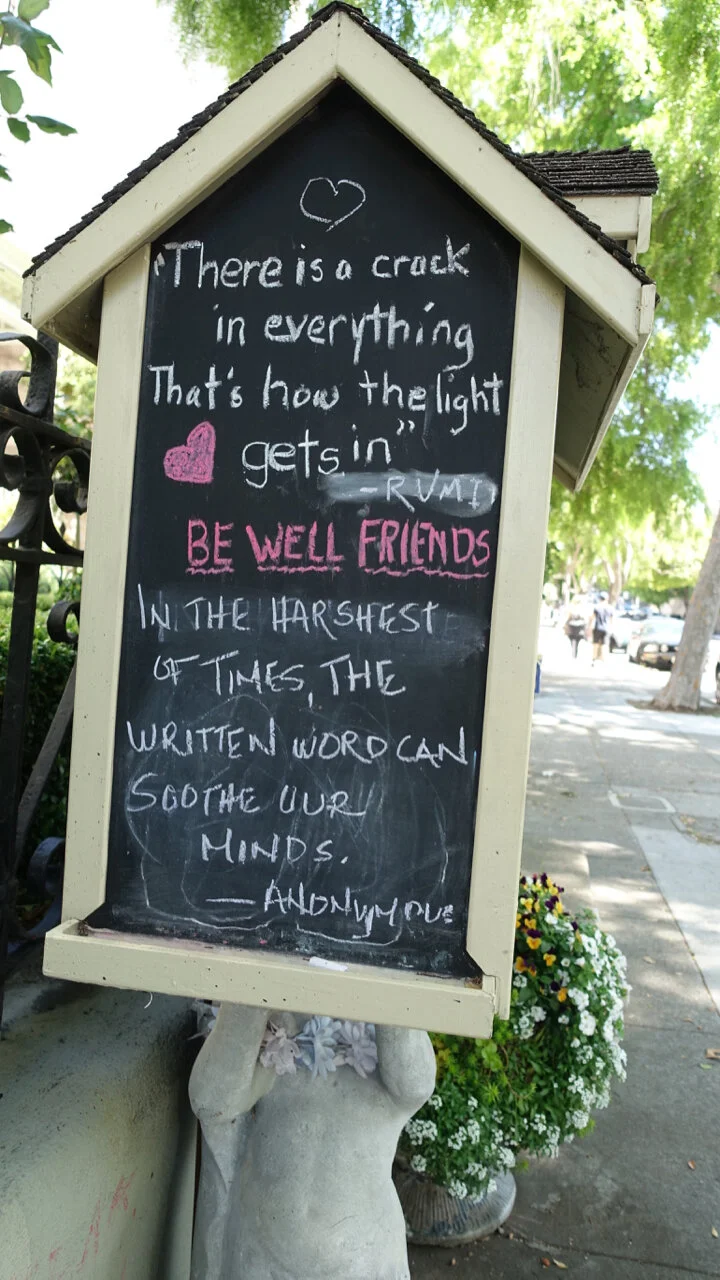 "There is a crack
in everything
That's how the light
gets in"
-RUMI
BE WELL FRIENDS
IN THE HARSHEST
OF TIMES, THE
WRITTEN WORD CAN
SOOTHE OUR
MINDS.
— ANONYMOUS